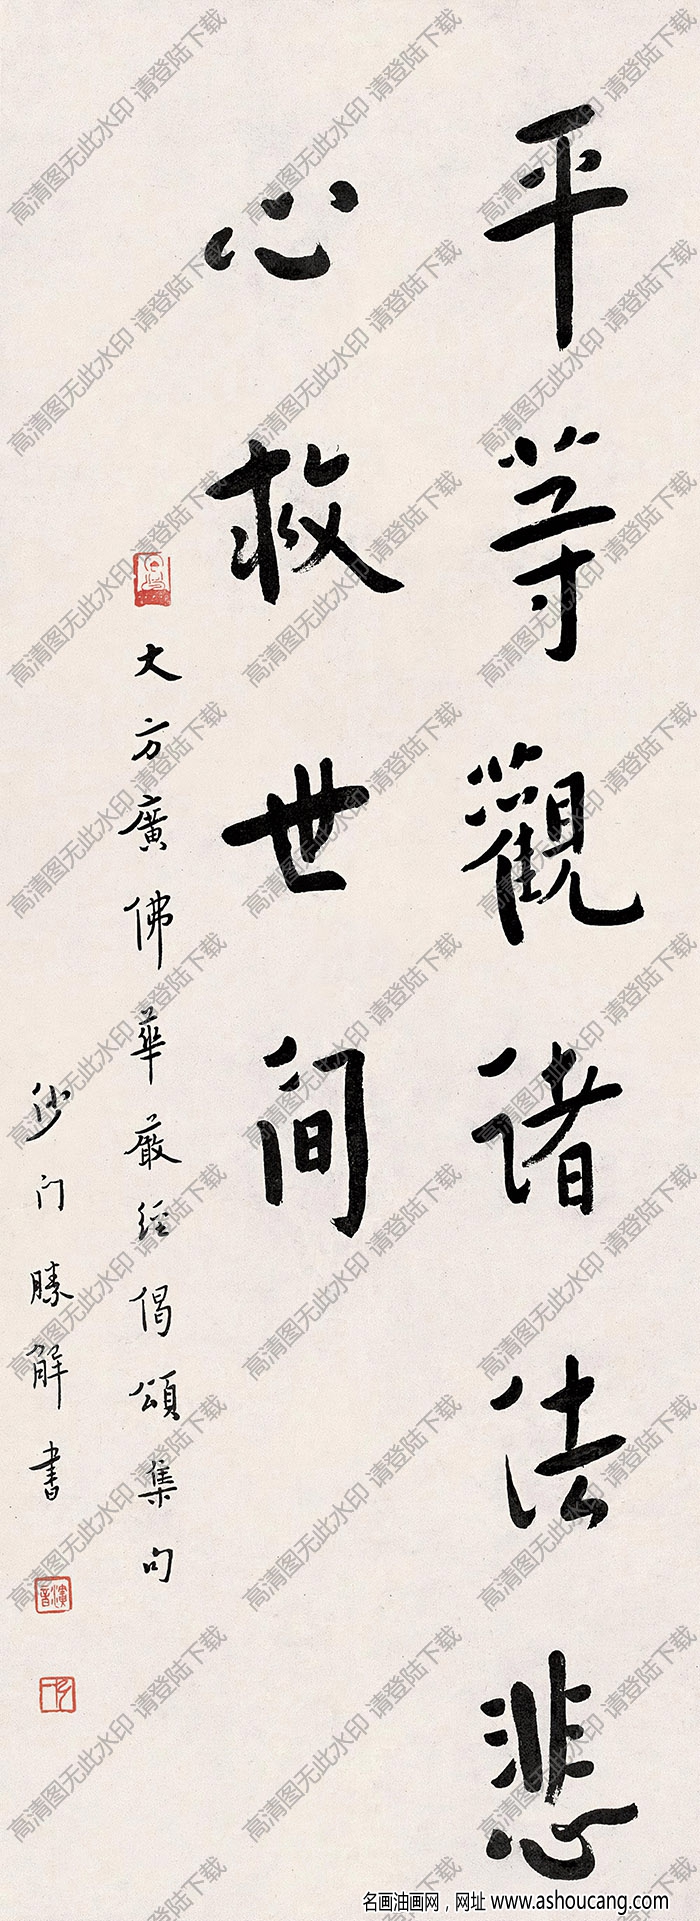 平等觀諸法悲
心救世間
大方廣佛華嚴經偈頌集句
沙门勝解書
演音
高清图无此水印 请登陆下载
名画油画网，网址 www.ashoucang.com